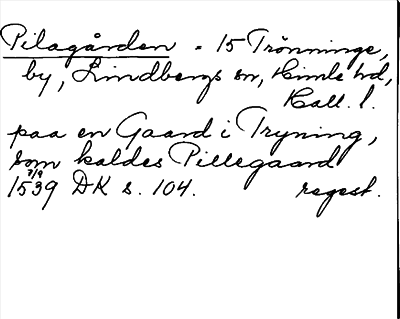 Pilagården - 15 Trönninge,
by, Lindbergs sn, Himle hd,
Hall. l.
paa en Gaard i Tryning,
som kaldes Pillegaard
7/9
1539 DK s. 104. regest.